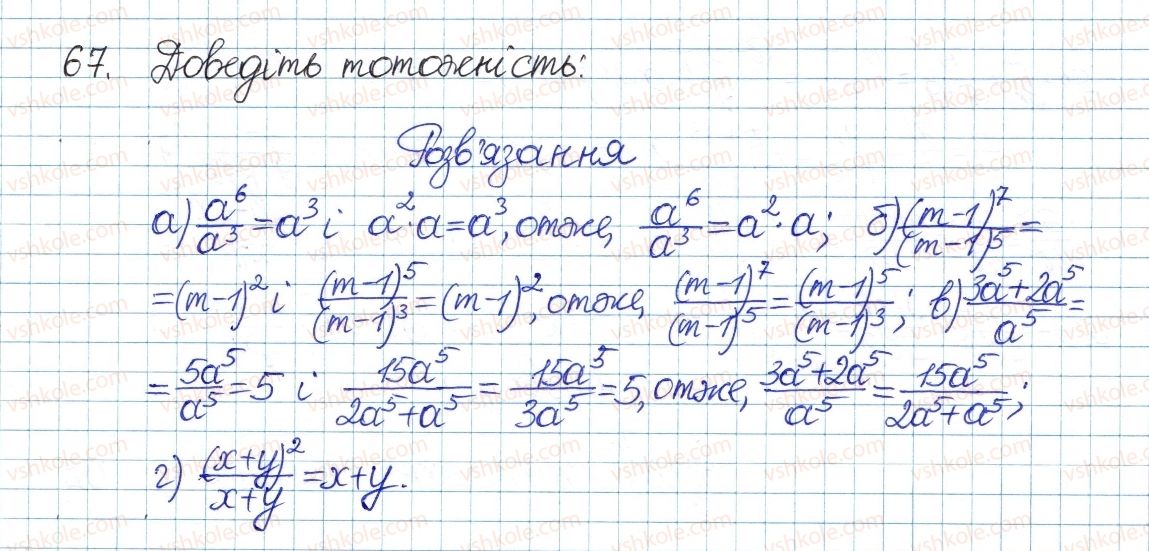 67. Доведіть тотожність:
Розв'язання
а) a⁶/a³ = a³ і a²·a = a³, отже, a⁶/a³ = a²·a; б) (m-1)⁷/(m-1)⁵ =
= (m-1)² і (m-1)⁵/(m-1)³ = (m-1)², отже, (m-1)⁷/(m-1)⁵ = (m-1)⁵/(m-1)³; в) 3a⁵+2a⁵/a⁵ =
= 5a⁵/a⁵ = 5 і 15a⁵/2a⁵+a⁵ = 15a⁵/3a⁵ = 5, отже, 3a⁵+2a⁵/a⁵ = 15a⁵/2a⁵+a⁵;
г) (x+y)²/x+y = x+y.
vshkole.com